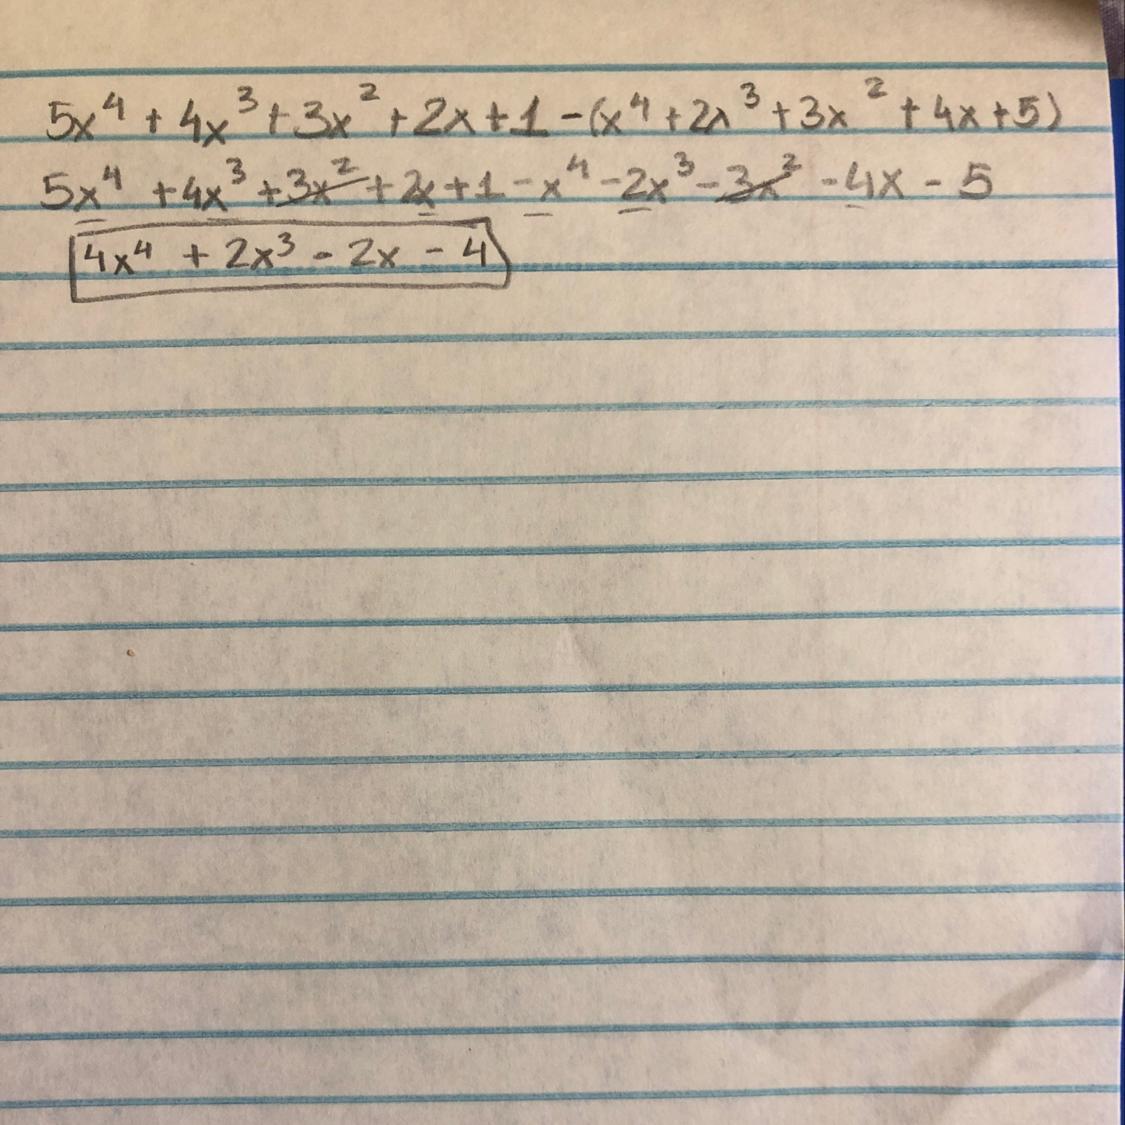 5x⁴ + 4x³ + 3x² + 2x + 1 - (x⁴ + 2x³ + 3x² + 4x + 5)
5x⁴ + 4x³ + 3x² + 2x + 1 - x⁴ - 2x³ - 3x² - 4x - 5
4x⁴ + 2x³ - 2x - 4